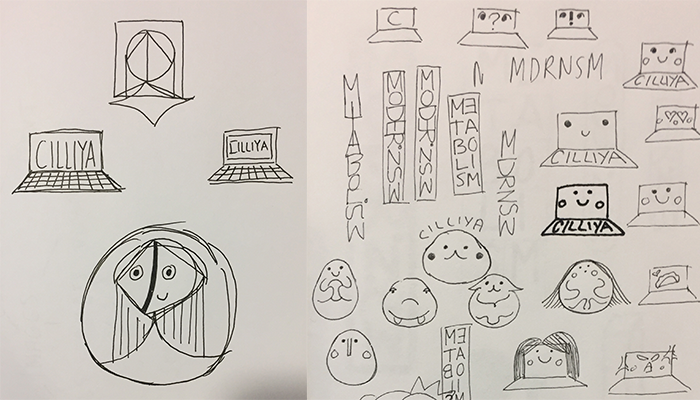 CILLIYA
CILLIYA
C
?
!
N MDRNSM
CILLIYA
METABOLISM
MODERNISM
MODERNISM
METABOLISM
MDRNSM
CILLIYA
CILLIYA
CILLIYA
METABOLISM